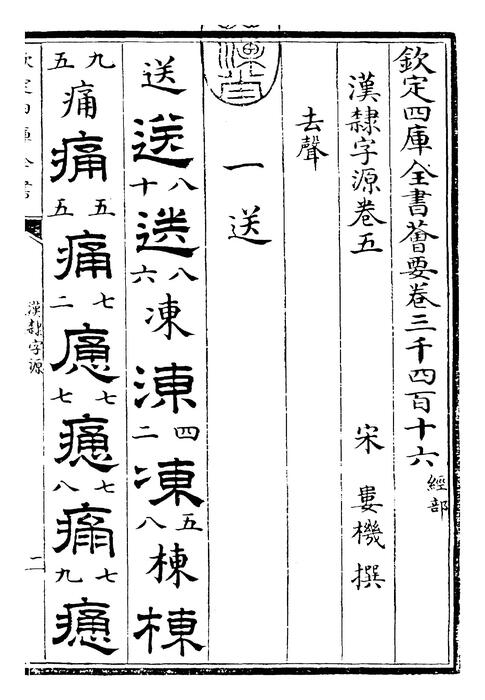 欽定四庫全書薈要卷三千四百十六 經部
漢隸字源卷五 宋 婁機撰
去聲
一送
送 送 八十 送 八六 凍 凍 四二 凍 五八 棟 棟
九五 痛 痛 五五 痛 七二 七七 七八 痛 七九
漢隸字源 二